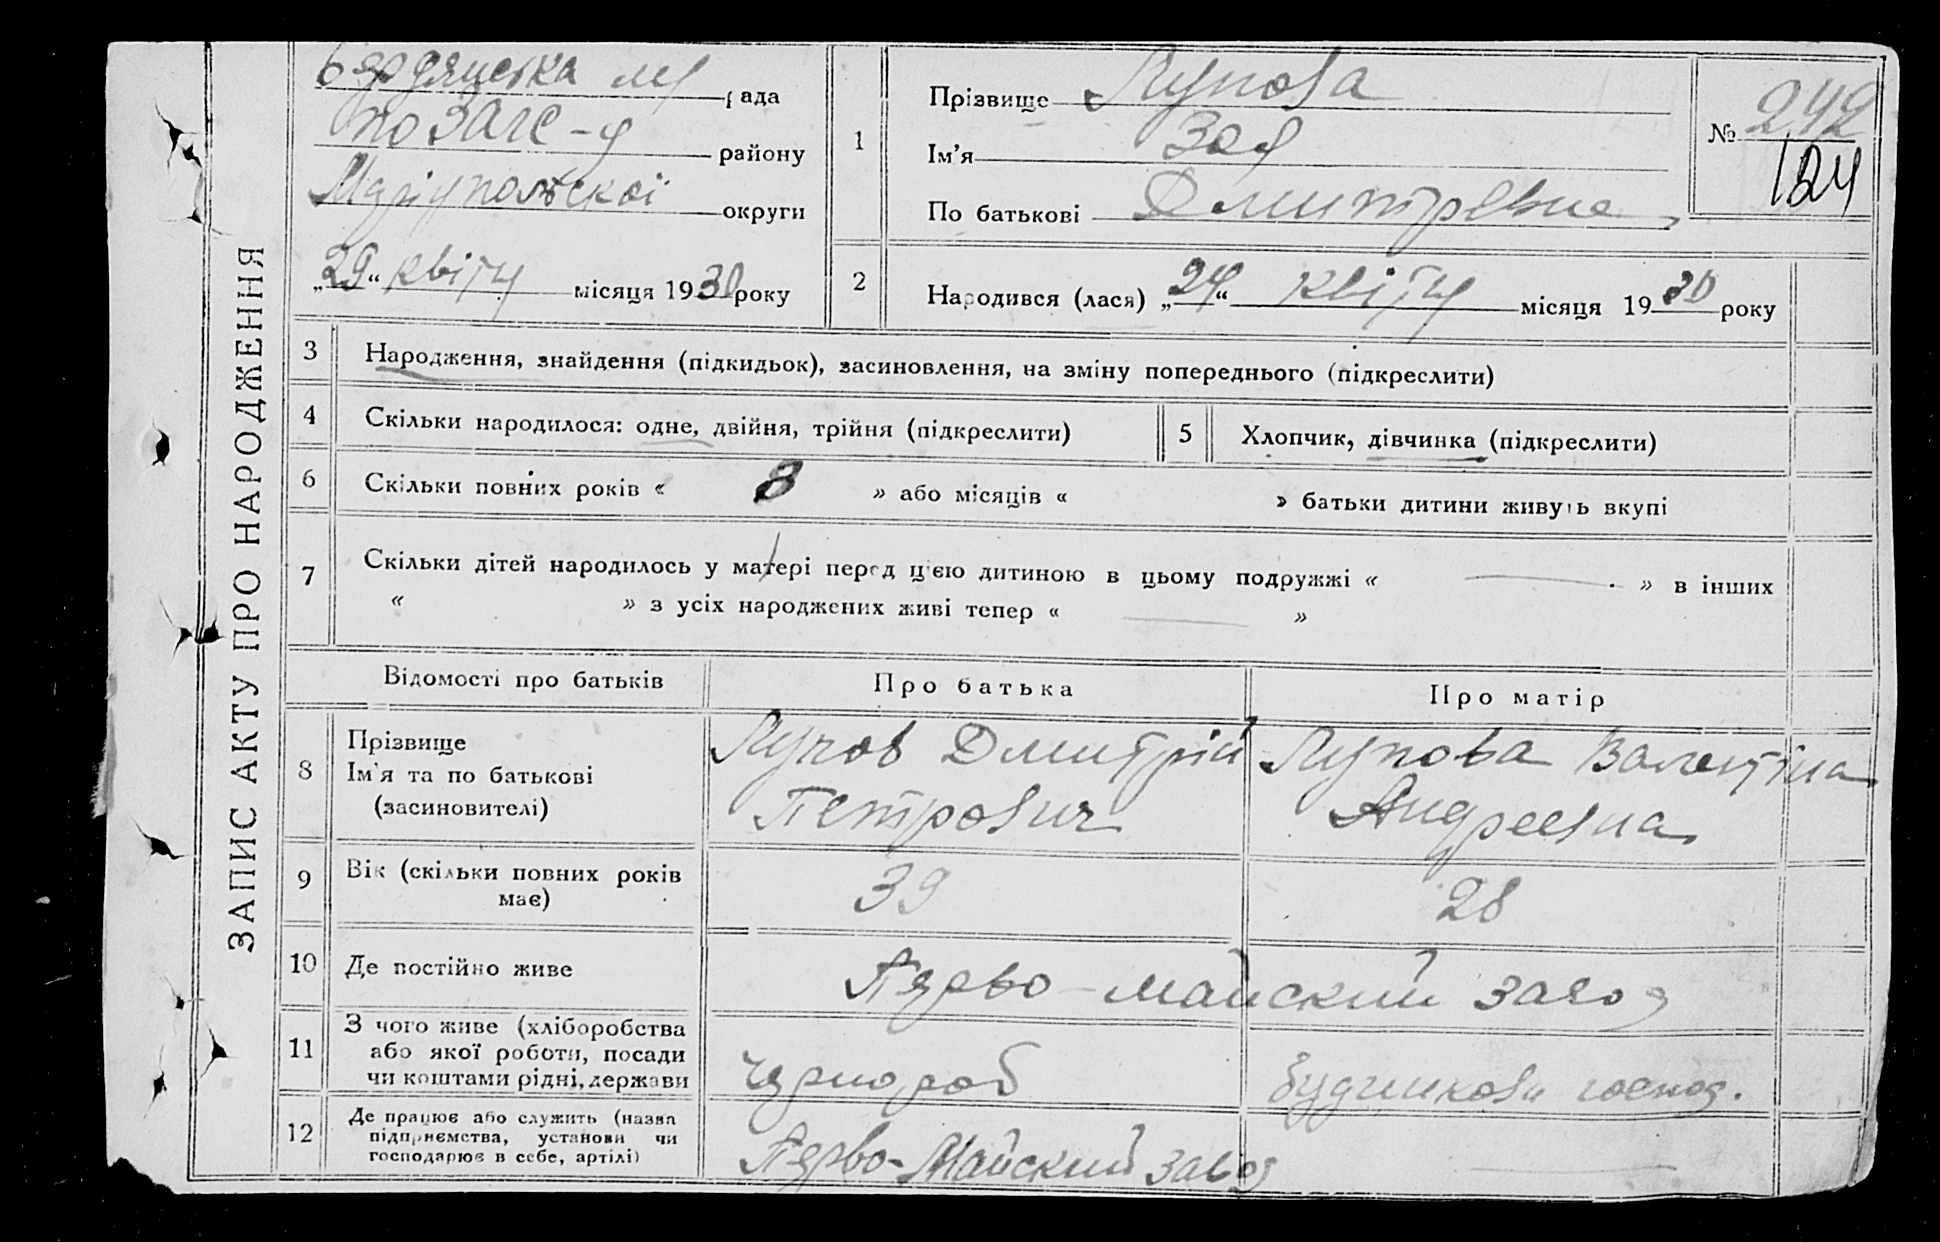 ЗАПИС АКТУ ПРО НАРОДЖЕННЯ
Бердянська рада
по ЗАГС-у району
Маріупольської округи
„29“ квітн місяця 1930 року
1 Прізвище Лупова
Ім'я Зоя
По батькові Дмитревна
№ 242
124
2 Народився (лася) „24“ квітн місяця 1930 року
3 Народження, знайдення (підкидьок), засиновлення, на зміну попереднього (підкреслити)
4 Скільки народилося: одне, двійня, трійня (підкреслити)
5 Хлопчик, дівчинка (підкреслити)
6 Скільки повних років « 8 » або місяців « » батьки дитини живуть вкупі
7 Скільки дітей народилось у матері перед цією дитиною в цьому подружжі « — » в інших
« » з усіх народжених живі тепер « — »
Відомості про батьків Про батька Про матір
8 Прізвище
Ім'я та по батькові
(засиновителі)
Лупов Дмитрій
Петрович
Лупова Валентіна
Андреевна
9 Вік (скільки повних років
має)
39 28
10 Де постійно живе Перво-майский завод
11 З чого живе (хліборобства
або якої роботи, посади
чи коштами рідні, держави
чернороб будинкова господ.
12 Де працює або служить (назва
підприємства, установи чи
господарює в себе, артілі)
Перво-Майский завод —